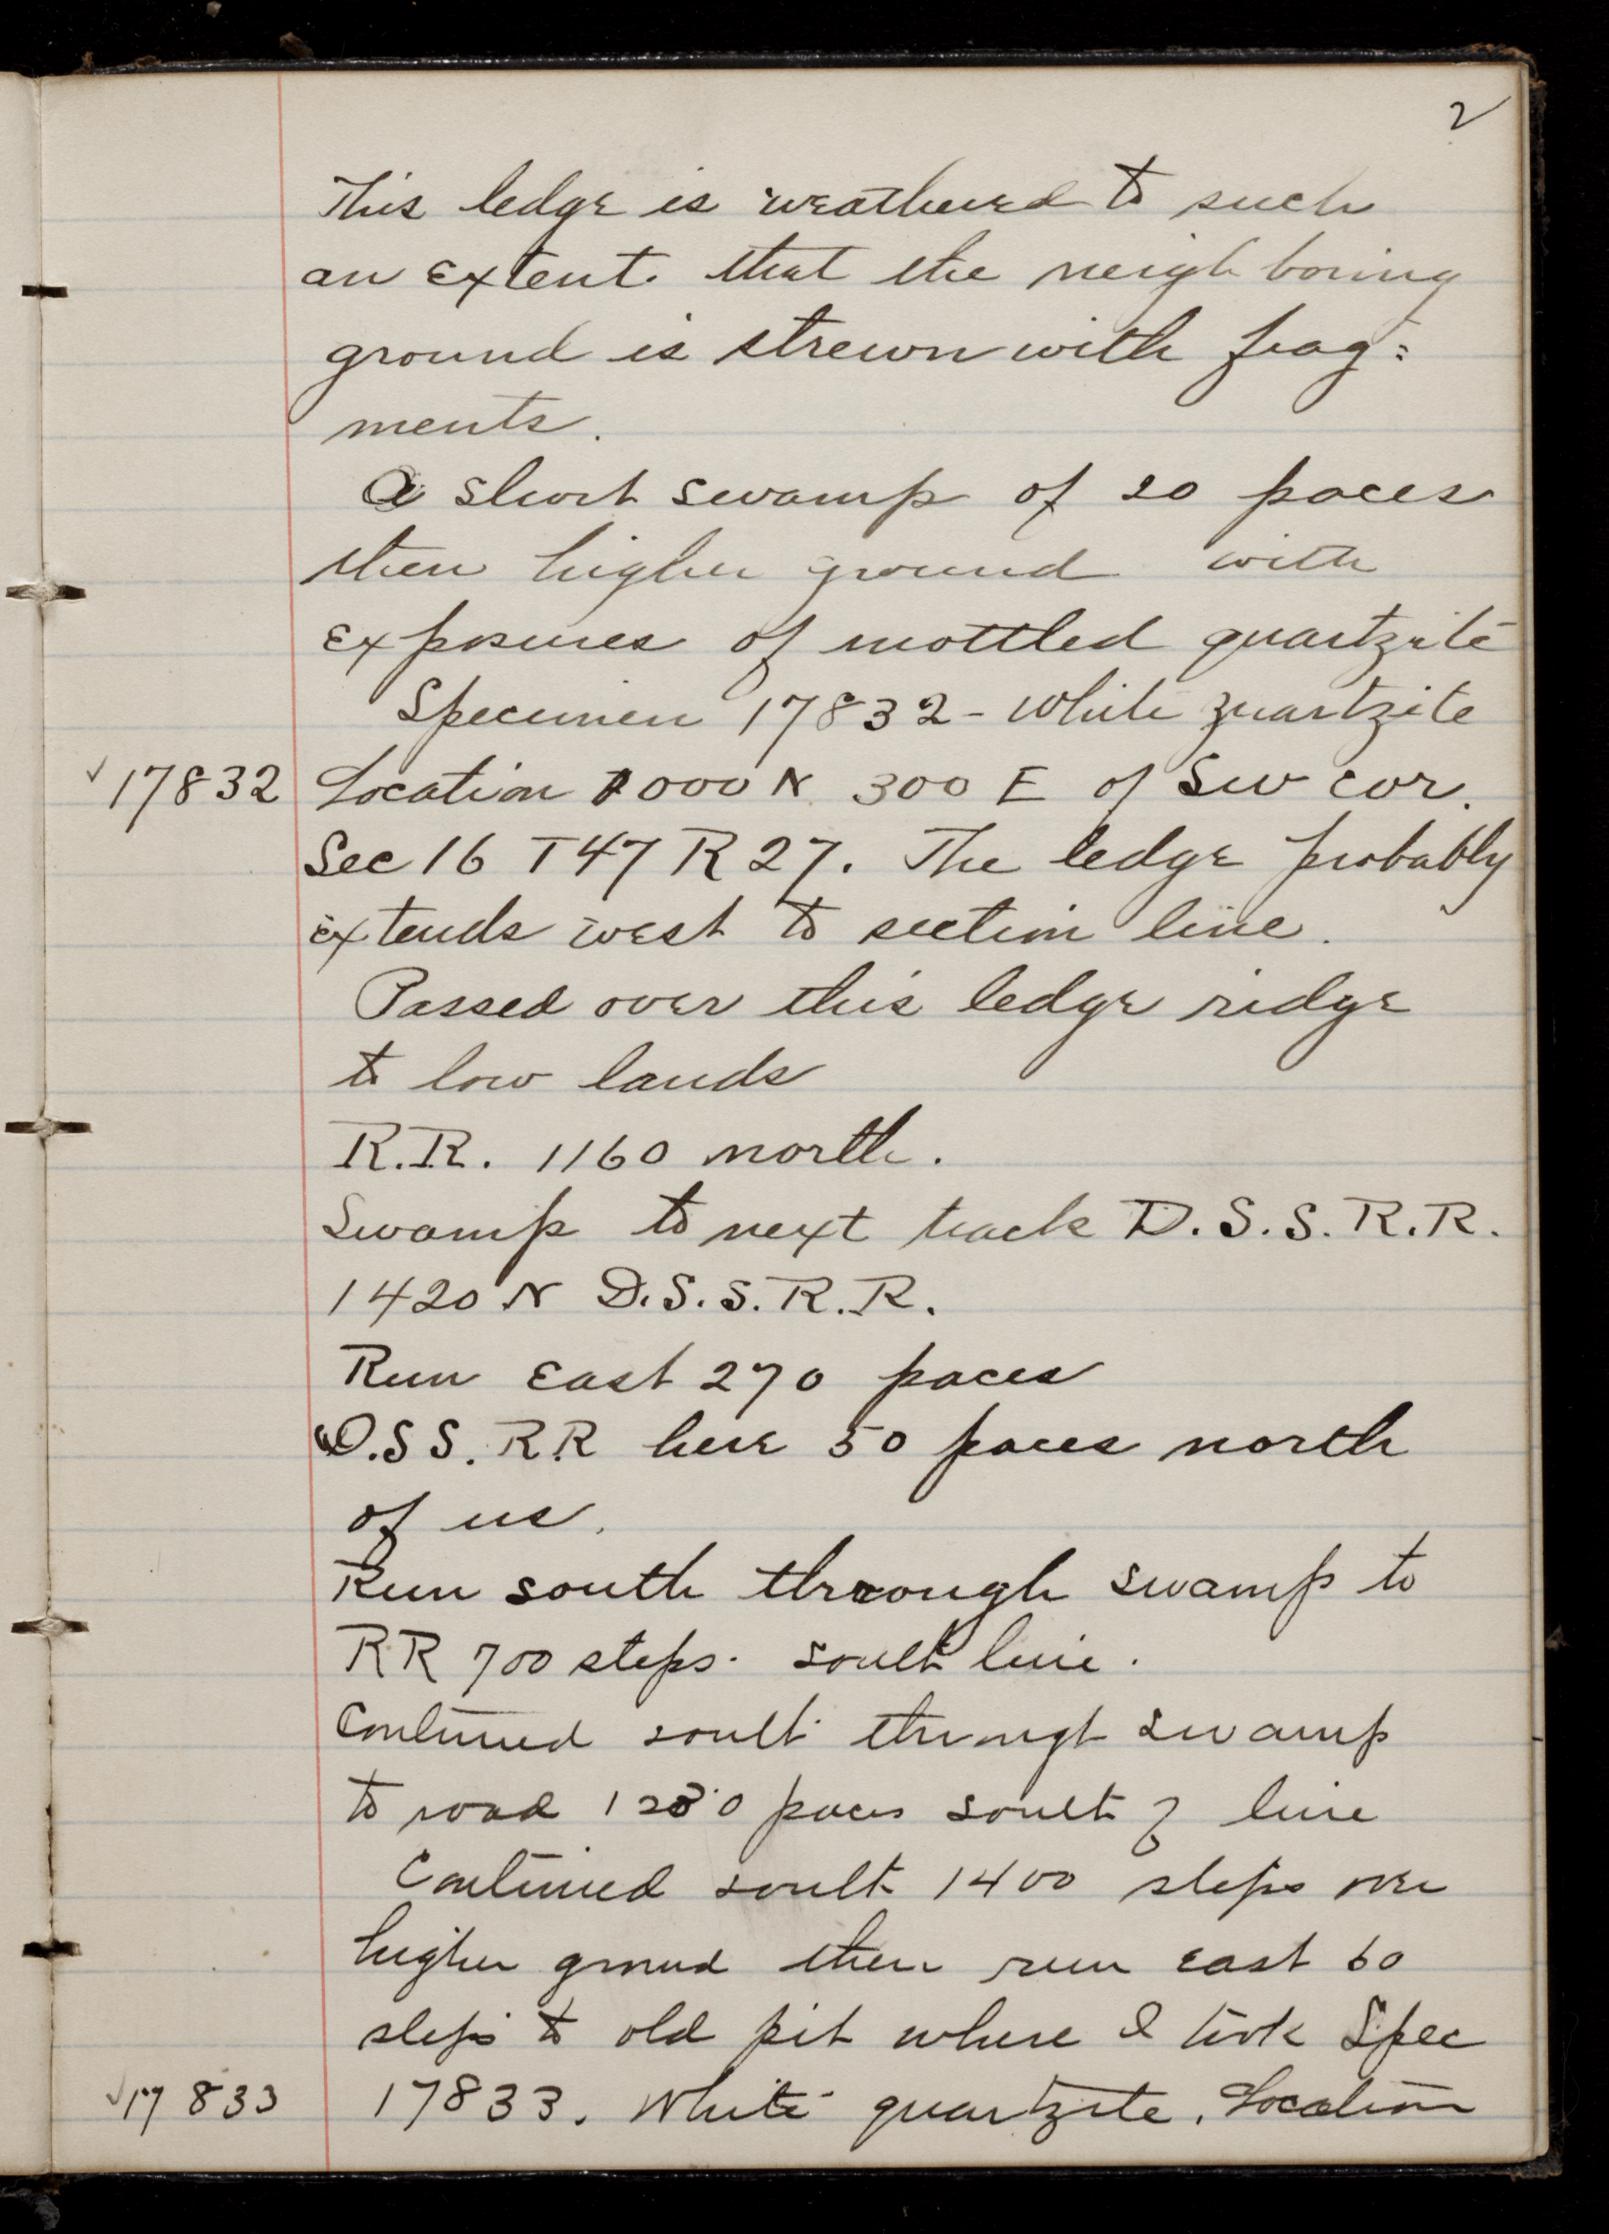 2
This ledge is weathered to such
an extent that the neighboring
ground is strewn with frag=
ments.
A short swamp of 20 paces
then higher ground with
exposures of mottled quartzite
Specimen 17832 - White quartzite
✓17832 Location 1000 N 300 E of SW cor.
Sec 16 T47 R27. The ledge probably
extends west to section line.
Passed over this ledge ridge
to low lands
R.R. 1160 north.
Swamp to next track D.S.S.R.R.
1420 N D.S.S.R.R.
Run East 270 paces
D.S S. R.R here 50 paces north
of us.
Run south through swamp to
RR 700 steps. south line.
Continued south through swamp
to road paces south of line
Continued south 1400 steps over
higher ground then run east 60
steps to old pit where I took Spec
✓17833 17833. White quartzite. Location